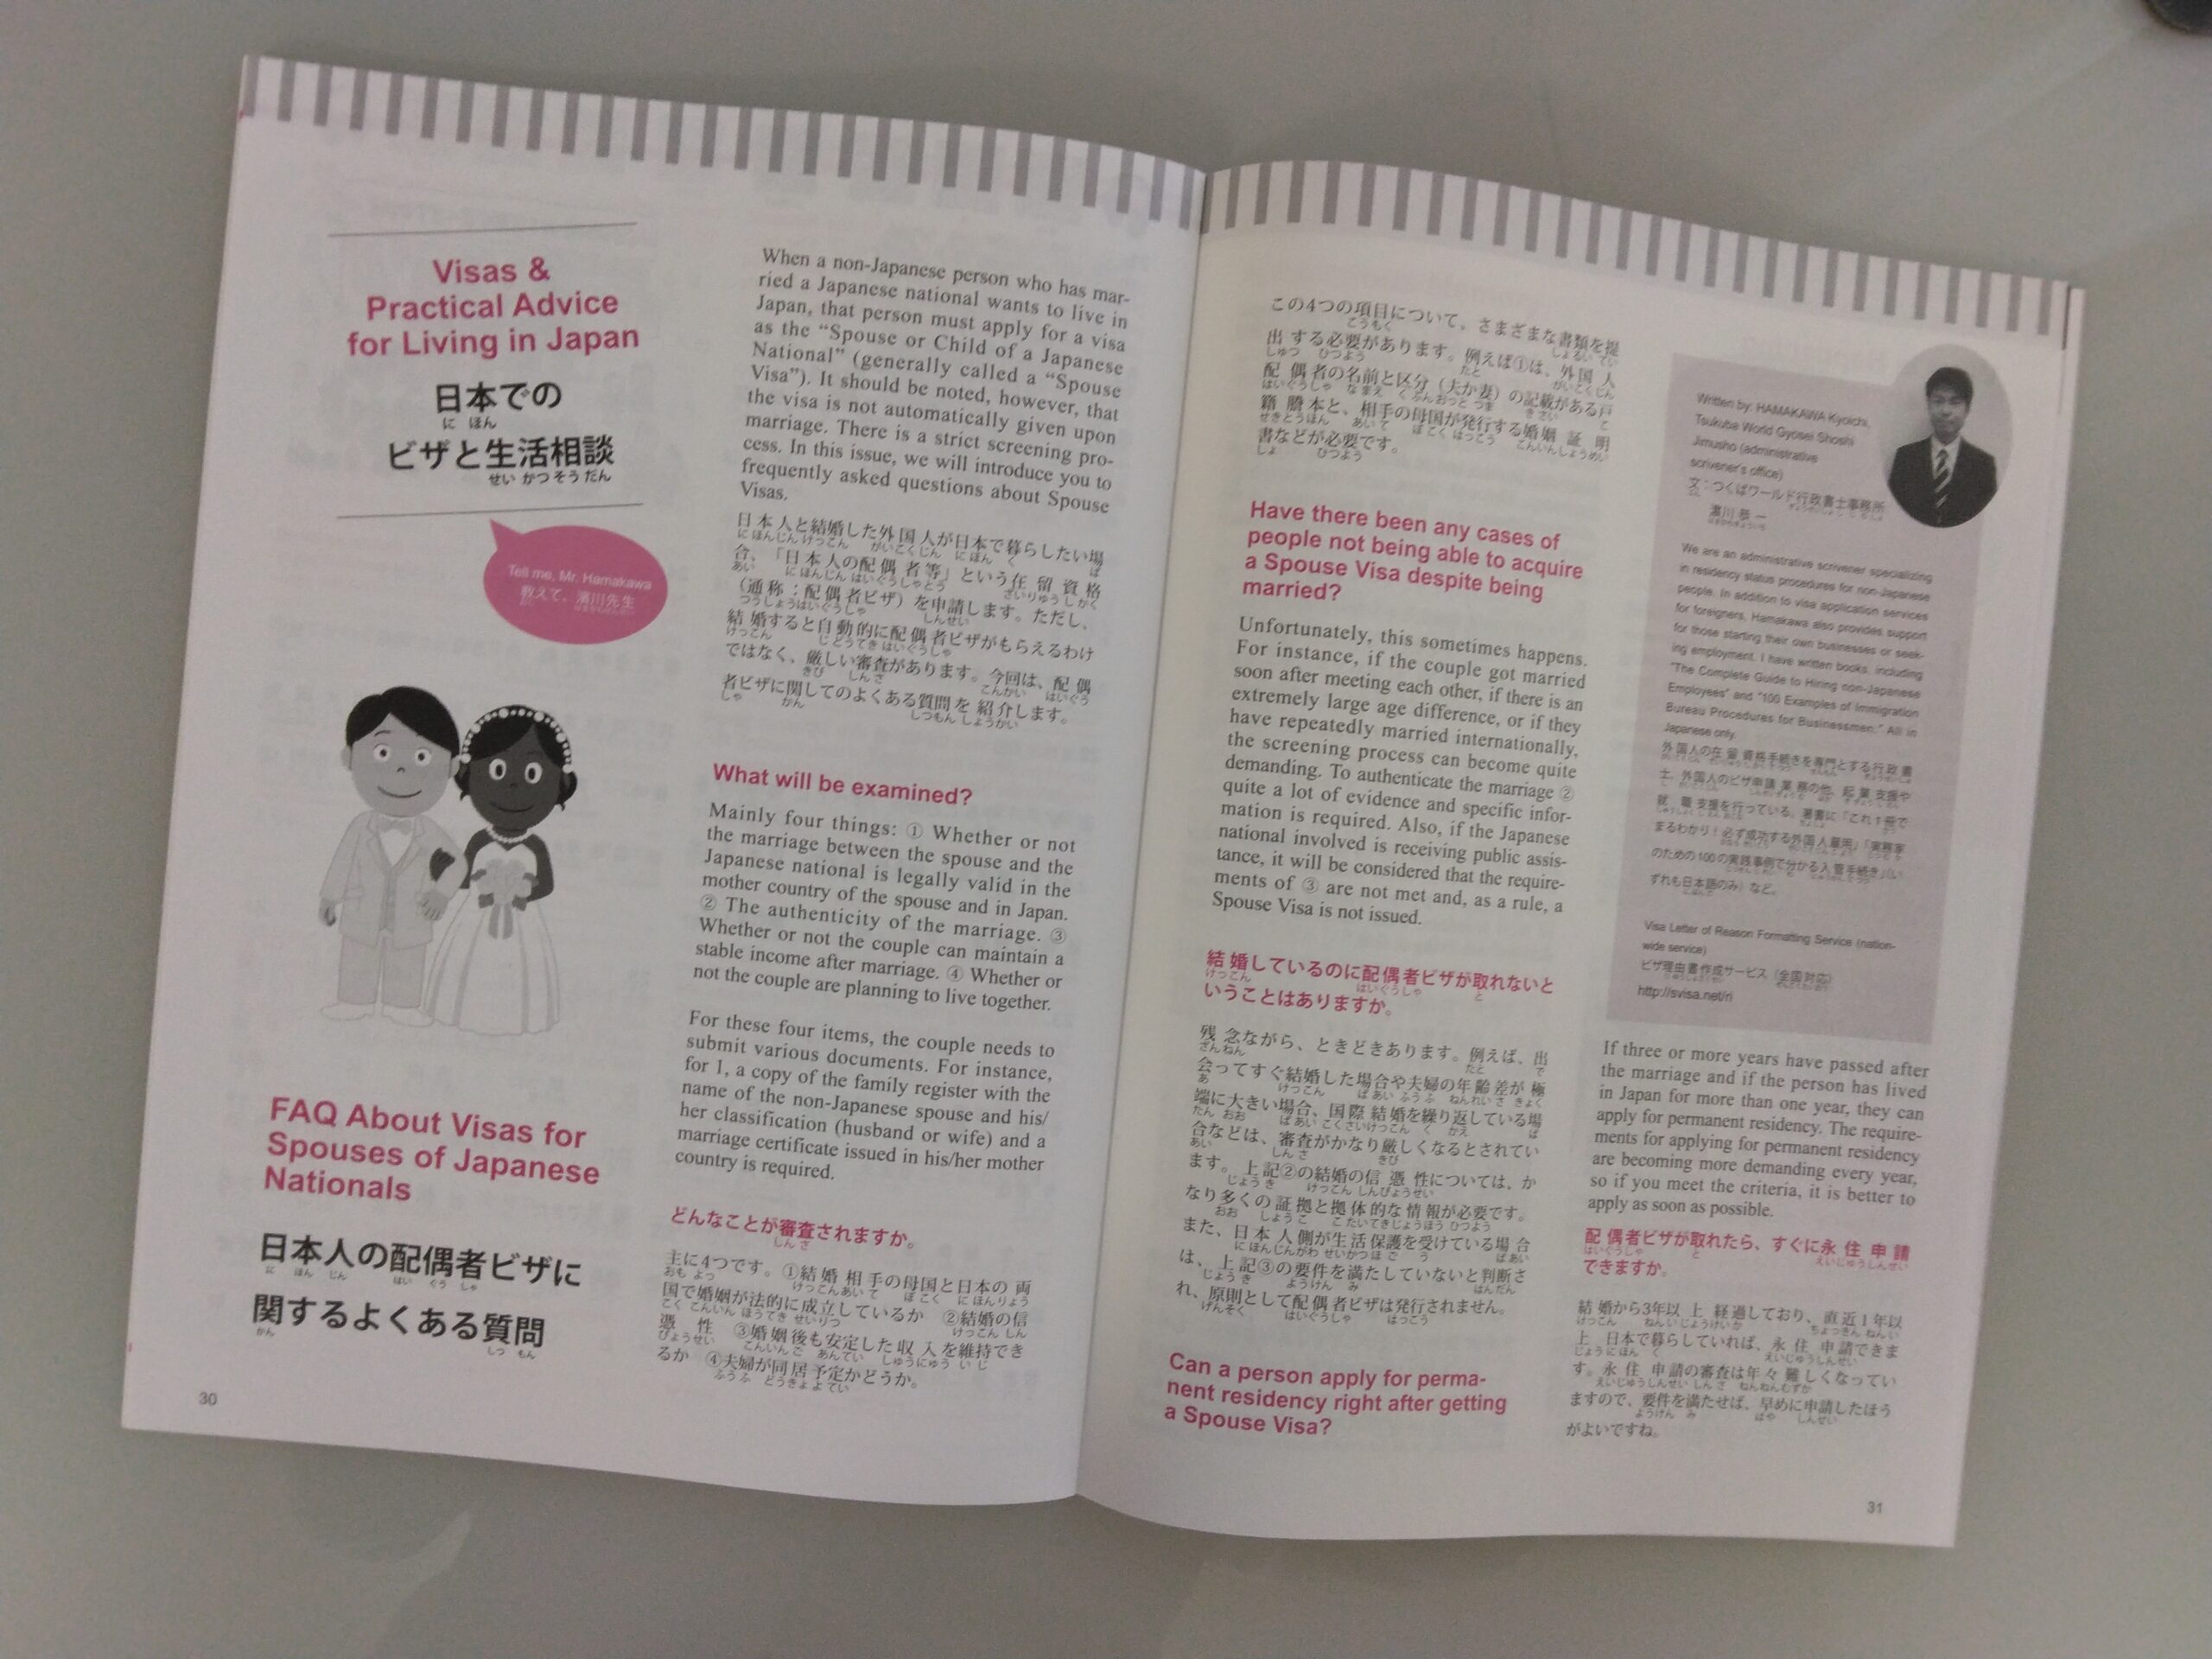 Visas &
Practical Advice
for Living in Japan
日本での
に ほん
ビザと生活相談
せい かつ そう だん
Tell me, Mr. Hamakawa
教えて、濱川先生
FAQ About Visas for
Spouses of Japanese
Nationals
日本人の配偶者ビザに
に ほん じん はい ぐう しゃ
関するよくある質問
かん しつ もん
30
When a non-Japanese person who has mar-
ried a Japanese national wants to live in
Japan, that person must apply for a visa
as the “Spouse or Child of a Japanese
National” (generally called a “Spouse
Visa”). It should be noted, however, that
the visa is not automatically given upon
marriage. There is a strict screening pro-
cess. In this issue, we will introduce you to
frequently asked questions about Spouse
Visas.
日本人と結婚した外国人が日本で暮らしたい場
に ほんじん けっこん がいこくじん に ほん く ば
合、「日本人の配偶者等」という在留資格
あい に ほんじん はいぐうしゃとう ざいりゅう し かく
（通称：配偶者ビザ）を申請します。ただし、
つうしょう はいぐうしゃ しんせい
結婚すると自動的に配偶者ビザがもらえるわけ
けっこん じ どうてき はいぐうしゃ
ではなく、厳しい審査があります。今回は、配偶
きび しん さ こんかい はいぐう
者ビザに関してのよくある質問を紹介します。
しゃ かん しつもん しょうかい
What will be examined?
Mainly four things: ① Whether or not
the marriage between the spouse and the
Japanese national is legally valid in the
mother country of the spouse and in Japan.
② The authenticity of the marriage. ③
Whether or not the couple can maintain a
stable income after marriage. ④ Whether or
not the couple are planning to live together.
For these four items, the couple needs to
submit various documents. For instance,
for 1, a copy of the family register with the
name of the non-Japanese spouse and his/
her classification (husband or wife) and a
marriage certificate issued in his/her mother
country is required.
どんなことが審査されますか。
しん さ
主に4つです。①結婚相手の母国と日本の両
おも よっ けっこんあい て ぼ こく に ほん りょう
国で婚姻が法的に成立しているか ②結婚の信
こく こんいん ほうてき せいりつ けっこん しん
憑性 ③婚姻後も安定した収入を維持でき
ぴょうせい こんいん ご あんてい しゅうにゅう い じ
るか ④夫婦が同居予定かどうか。
ふう ふ どうきょ よ てい
この4つの項目について、さまざまな書類を提
こうもく しょるい てい
出する必要があります。例えば①は、外国人
しゅつ ひつよう たと がいこくじん
配偶者の名前と区分（夫か妻）の記載がある戸
はいぐうしゃ な まえ く ぶん おっと つま き さい こ
籍謄本と、相手の母国が発行する婚姻証明
せきとうほん あい て ぼ こく はっこう こんいんしょうめい
書などが必要です。
しょ ひつよう
Have there been any cases of
people not being able to acquire
a Spouse Visa despite being
married?
Unfortunately, this sometimes happens.
For instance, if the couple got married
soon after meeting each other, if there is an
extremely large age difference, or if they
have repeatedly married internationally,
the screening process can become quite
demanding. To authenticate the marriage ②
quite a lot of evidence and specific infor-
mation is required. Also, if the Japanese
national involved is receiving public assis-
tance, it will be considered that the require-
ments of ③ are not met and, as a rule, a
Spouse Visa is not issued.
結婚しているのに配偶者ビザが取れないと
けっこん はいぐうしゃ と
いうことはありますか。
残念ながら、ときどきあります。例えば、出
ざんねん たと で
会ってすぐ結婚した場合や夫婦の年齢差が極
あ けっこん ば あい ふう ふ ねんれい さ きょく
端に大きい場合、国際結婚を繰り返している場
たん おお ば あい こくさいけっこん く かえ ば
合などは、審査がかなり厳しくなるとされてい
あい しん さ きび
ます。上記②の結婚の信憑性については、か
じょう き けっこん しんぴょうせい
なり多くの証拠と拠体的な情報が必要です。
おお しょう こ こ たいてき じょうほう ひつよう
また、日本人側が生活保護を受けている場合
に ほんじんがわ せいかつ ほ ご う ば あい
は、上記③の要件を満たしていないと判断さ
じょう き ようけん み はんだん
れ、原則として配偶者ビザは発行されません。
げんそく はいぐうしゃ はっこう
Can a person apply for perma-
nent residency right after getting
a Spouse Visa?
Written by: HAMAKAWA Kyoichi,
Tsukuba World Gyosei Shoshi
Jimusho (administrative
scrivener's office)
文：つくばワールド行政書士事務所
濱川 恭一
We are an administrative scrivener specializing
in residency status procedures for non-Japanese
people. In addition to visa application services
for foreigners, Hamakawa also provides support
for those starting their own businesses or seek-
ing employment. I have written books, including
"The Complete Guide to Hiring non-Japanese
Employees" and "100 Examples of Immigration
Bureau Procedures for Businessmen." All in
Japanese only.
外国人の在留資格手続きを専門とする行政書
士。外国人のビザ申請業務の他、起業支援や
就職支援を行っている。著書に「これ1冊で
まるわかり！必ず成功する外国人雇用」「実務家
のための100の実践事例で分かる入管手続き」（い
ずれも日本語のみ）など。
Visa Letter of Reason Formatting Service (nation-
wide service)
ビザ理由書作成サービス（全国対応）
http://svisa.net/ri
If three or more years have passed after
the marriage and if the person has lived
in Japan for more than one year, they can
apply for permanent residency. The require-
ments for applying for permanent residency
are becoming more demanding every year,
so if you meet the criteria, it is better to
apply as soon as possible.
配偶者ビザが取れたら、すぐに永住申請
はいぐうしゃ と えいじゅうしんせい
できますか。
結婚から3年以上経過しており、直近1年以
けっこん ねん い じょうけい か ちょっきん ねん い
上日本で暮らしていれば、永住申請できま
じょう に ほん く えいじゅうしんせい
す。永住申請の審査は年々難しくなってい
えいじゅうしんせい しん さ ねんねんむずか
ますので、要件を満たせば、早めに申請したほう
ようけん み はや しんせい
がよいですね。
31